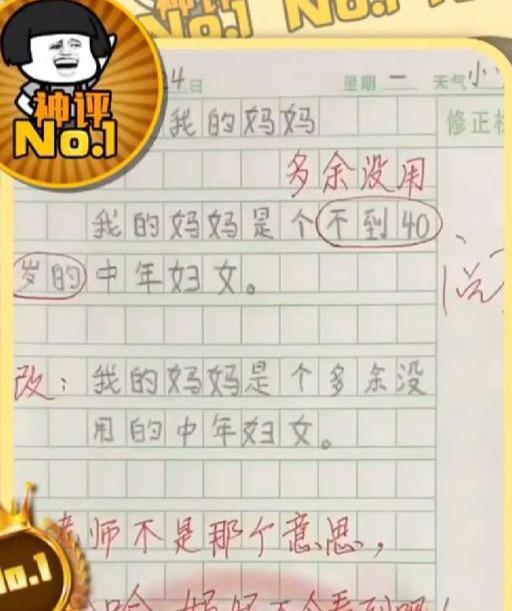 No.1 No.1
神评
No.1
4日 星期一 天气小
我的妈妈
修正栏
多余没用
我的妈妈是个不到40
岁的中年妇女。
改:我的妈妈是个多余没
用的中年妇女。
老师不是那个意思,
No.1